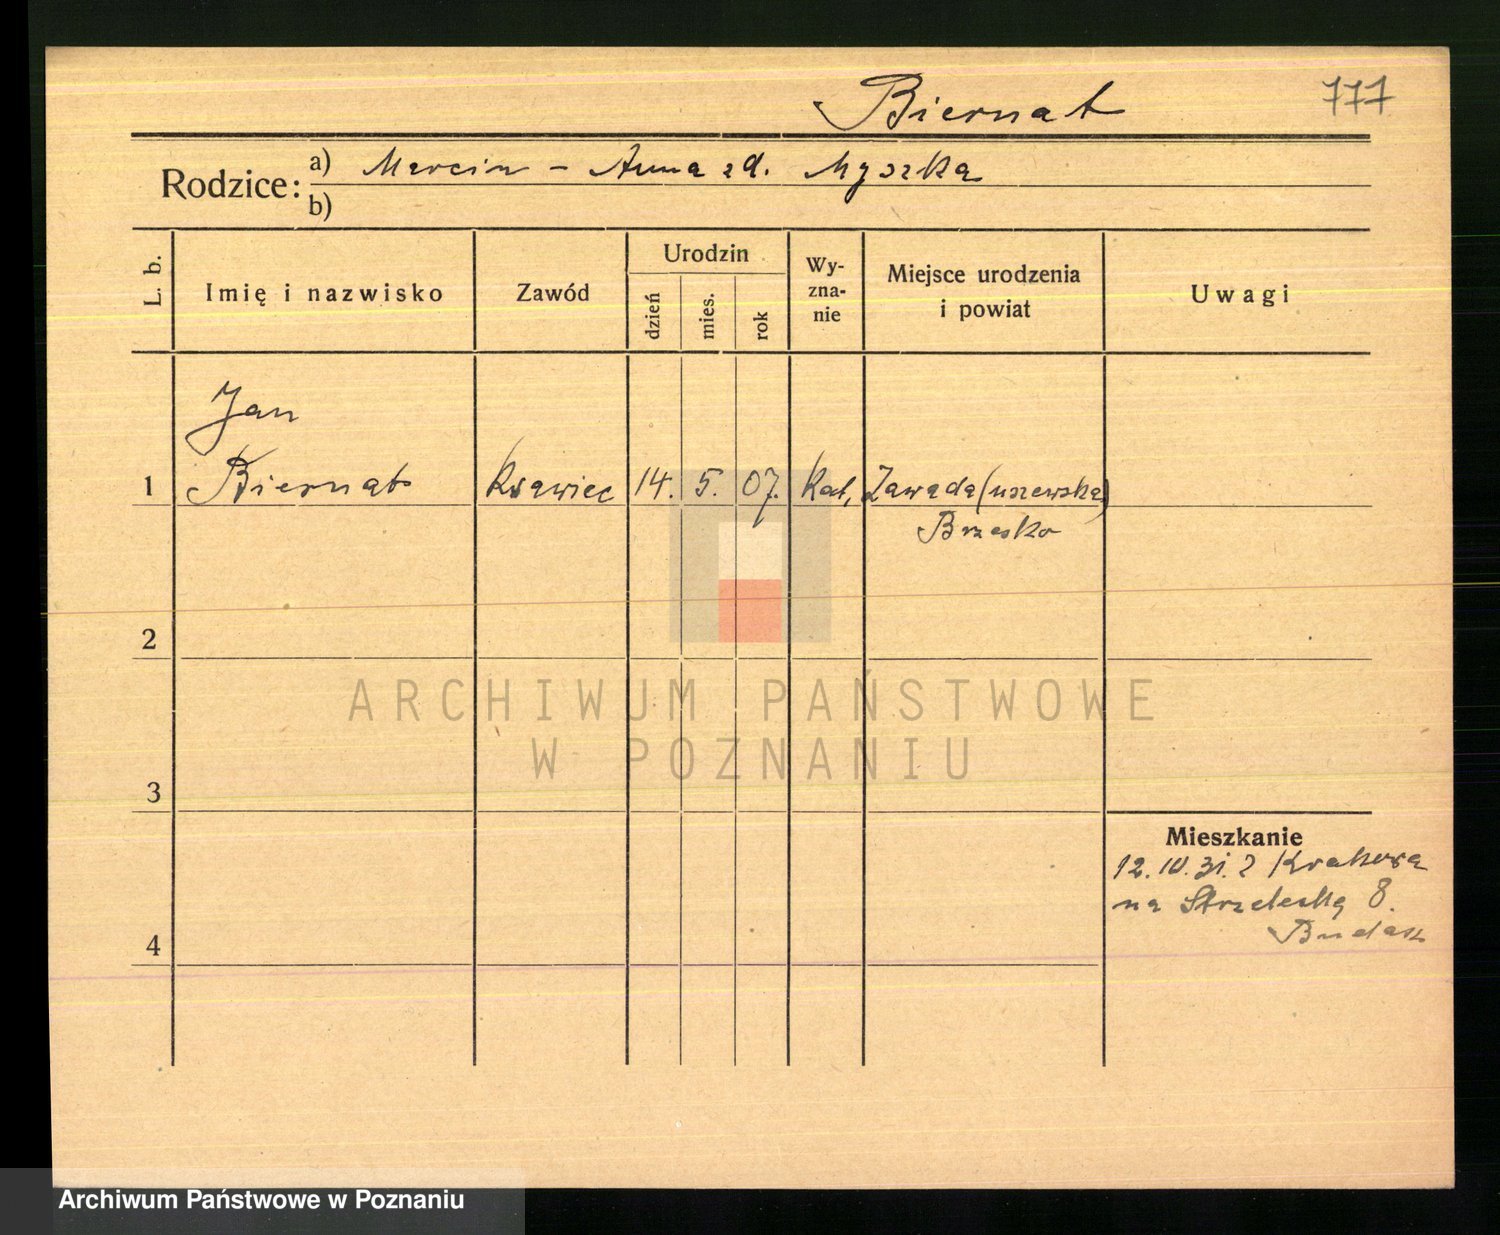 Biernat 777
Rodzice: a) Marcin – Anna zd. Myszka
b)
L. b.
Imię i nazwisko
Zawód
Urodzin
dzień
mies.
rok
Wy-
zna-
nie
Miejsce urodzenia
i powiat
Uwagi
Jan
1 Biernat Krawiec 14. 5. 07. Kat. Zawada (uszewska)
Brzesko
2
3
4
Mieszkanie
12. 10. 31. z Krakowa
na Strzelecką 8.
ARCHIWUM PAŃSTWOWE
W POZNANIU
Archiwum Państwowe w Poznaniu